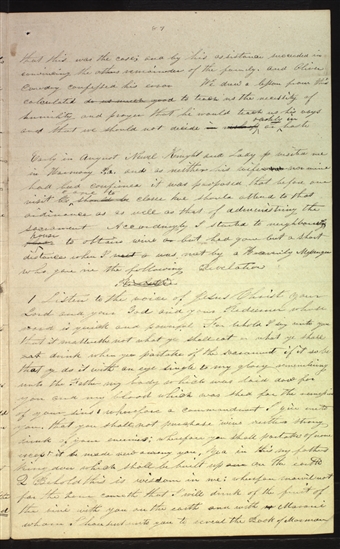 that this was the case; and by his assistance succeeded in
convincing the remainder of the family, and Oliver
Cowdry confessed his error We drew a lesson from this
calculated to teach us the necessity of
humility and prayer that he would teach us his ways
and that we should not decide or rash
Early in August Newel Knight and Lady visited me
in Harmony Pa. and as neither his wife or mine
had had confirmed it was proposed that before
visit came to close we should attend to that
ordinance as well as that of administering the
sacrament Accordingly I started to neighbouring
house to obtain wine but had gone but a short
distance when I was met by a Heavenly Messenger
who gave me the following Revelation
1 Listen to the voice of Jesus Christ your
Lord and your God and your Redeemer whose
word is quick and powerful For behold I say unto you
that it mattereth not what you shall eat or what ye shall
drink when you partake of the sacrament if it so be
that ye do it with an eye single to my glory remembering
unto the Father my body which was laid down for
you and my blood which was shed for the remission
of your sins wherefore a commandment I give unto
you, that you shall not purchase wine neither strong
drink of your enemies; wherefore you shall partake of none
except it be made new among you, Yea in this my fathers
kingdom which shall be built up on the earth
2 Behold this is wisdom in me; wherefore marvel not
for the hour cometh that I will drink of the fruit of
the vine with you on the earth and with Moroni
whom I have sent unto you to reveal the Book of Mormon